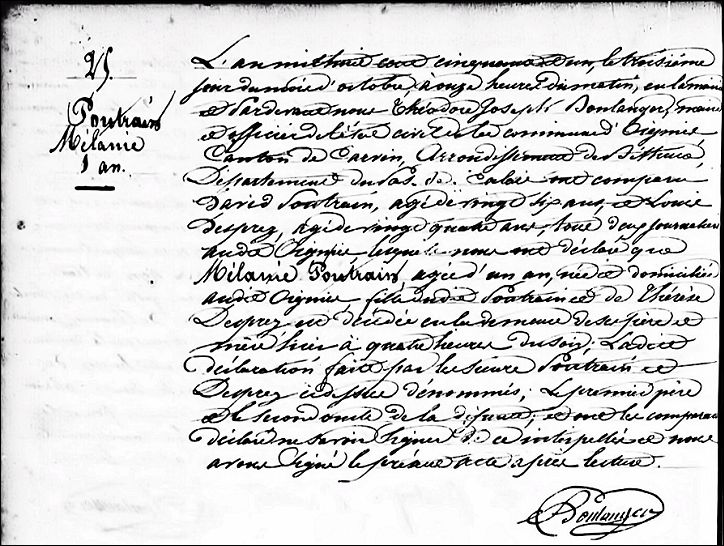 25
Poutrain
Mélanie
1 an.
L'an mil huit cent cinquante un, le troisième
jour du mois d'octobre, à onze heures du matin, en la mairie
et Pardevant nous Théodore Joseph Boulanger, maire
et officier de l'état civil de la commune d'Oignies,
Canton de Carvin, Arrondissement de Béthune,
Département du Pas-de-Calais ont comparu
David Poutrain, agé de vingt six ans, et Louis
Desprez, agé de vingt quatre ans, tous deux journaliers
audit Oignies, lesquels nous ont déclaré que
Mélanie Poutrain, agée d'un an, née et domiciliée
audit Oignies fille dudit Poutrain et de Thérèse
Desprez est décédée en la demeure de ses père et
mère hier à quatre heures du soir; Ladite
déclaration faite par les sieurs Poutrain et
Desprez ci-dessus dénommés; Le premier père
et le second oncle de la défunte; et ont les comparans
déclaré ne savoir signer de ce interpellés et nous
avons signé le présent acte après lecture.
Boulanger